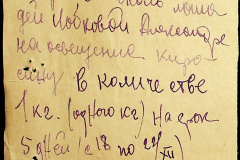 дей Лобковой Александре
на освещение керо
сину в количестве
1 кг. (одного кг) на срок
5 дней (с 18 по 22/XII)